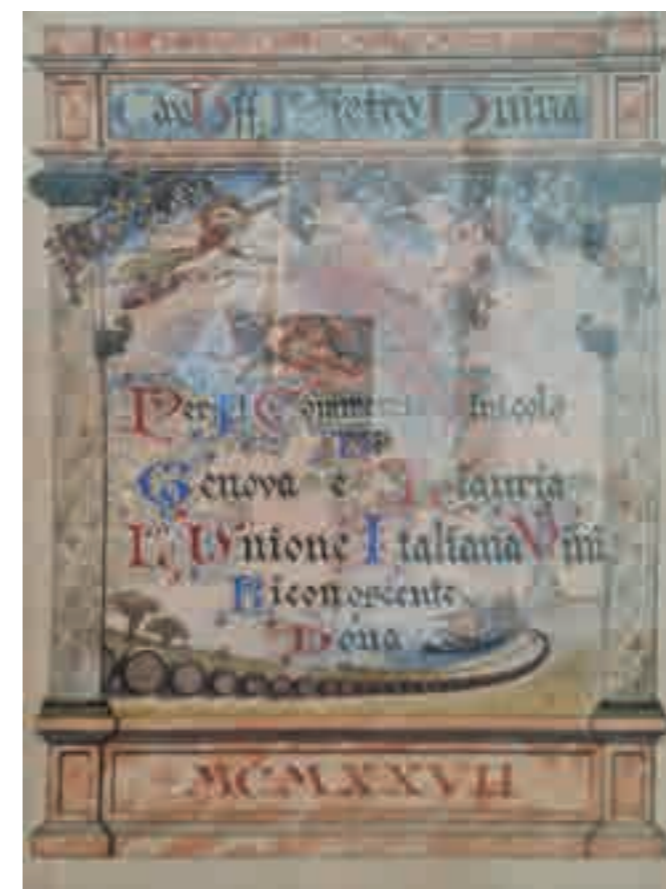 Cav Uff Pietro
Per Il Commercio Vinicolo
Genova e Liguria
L'Unione Italiana Vini
Riconoscente
Dona
MCMXXVII